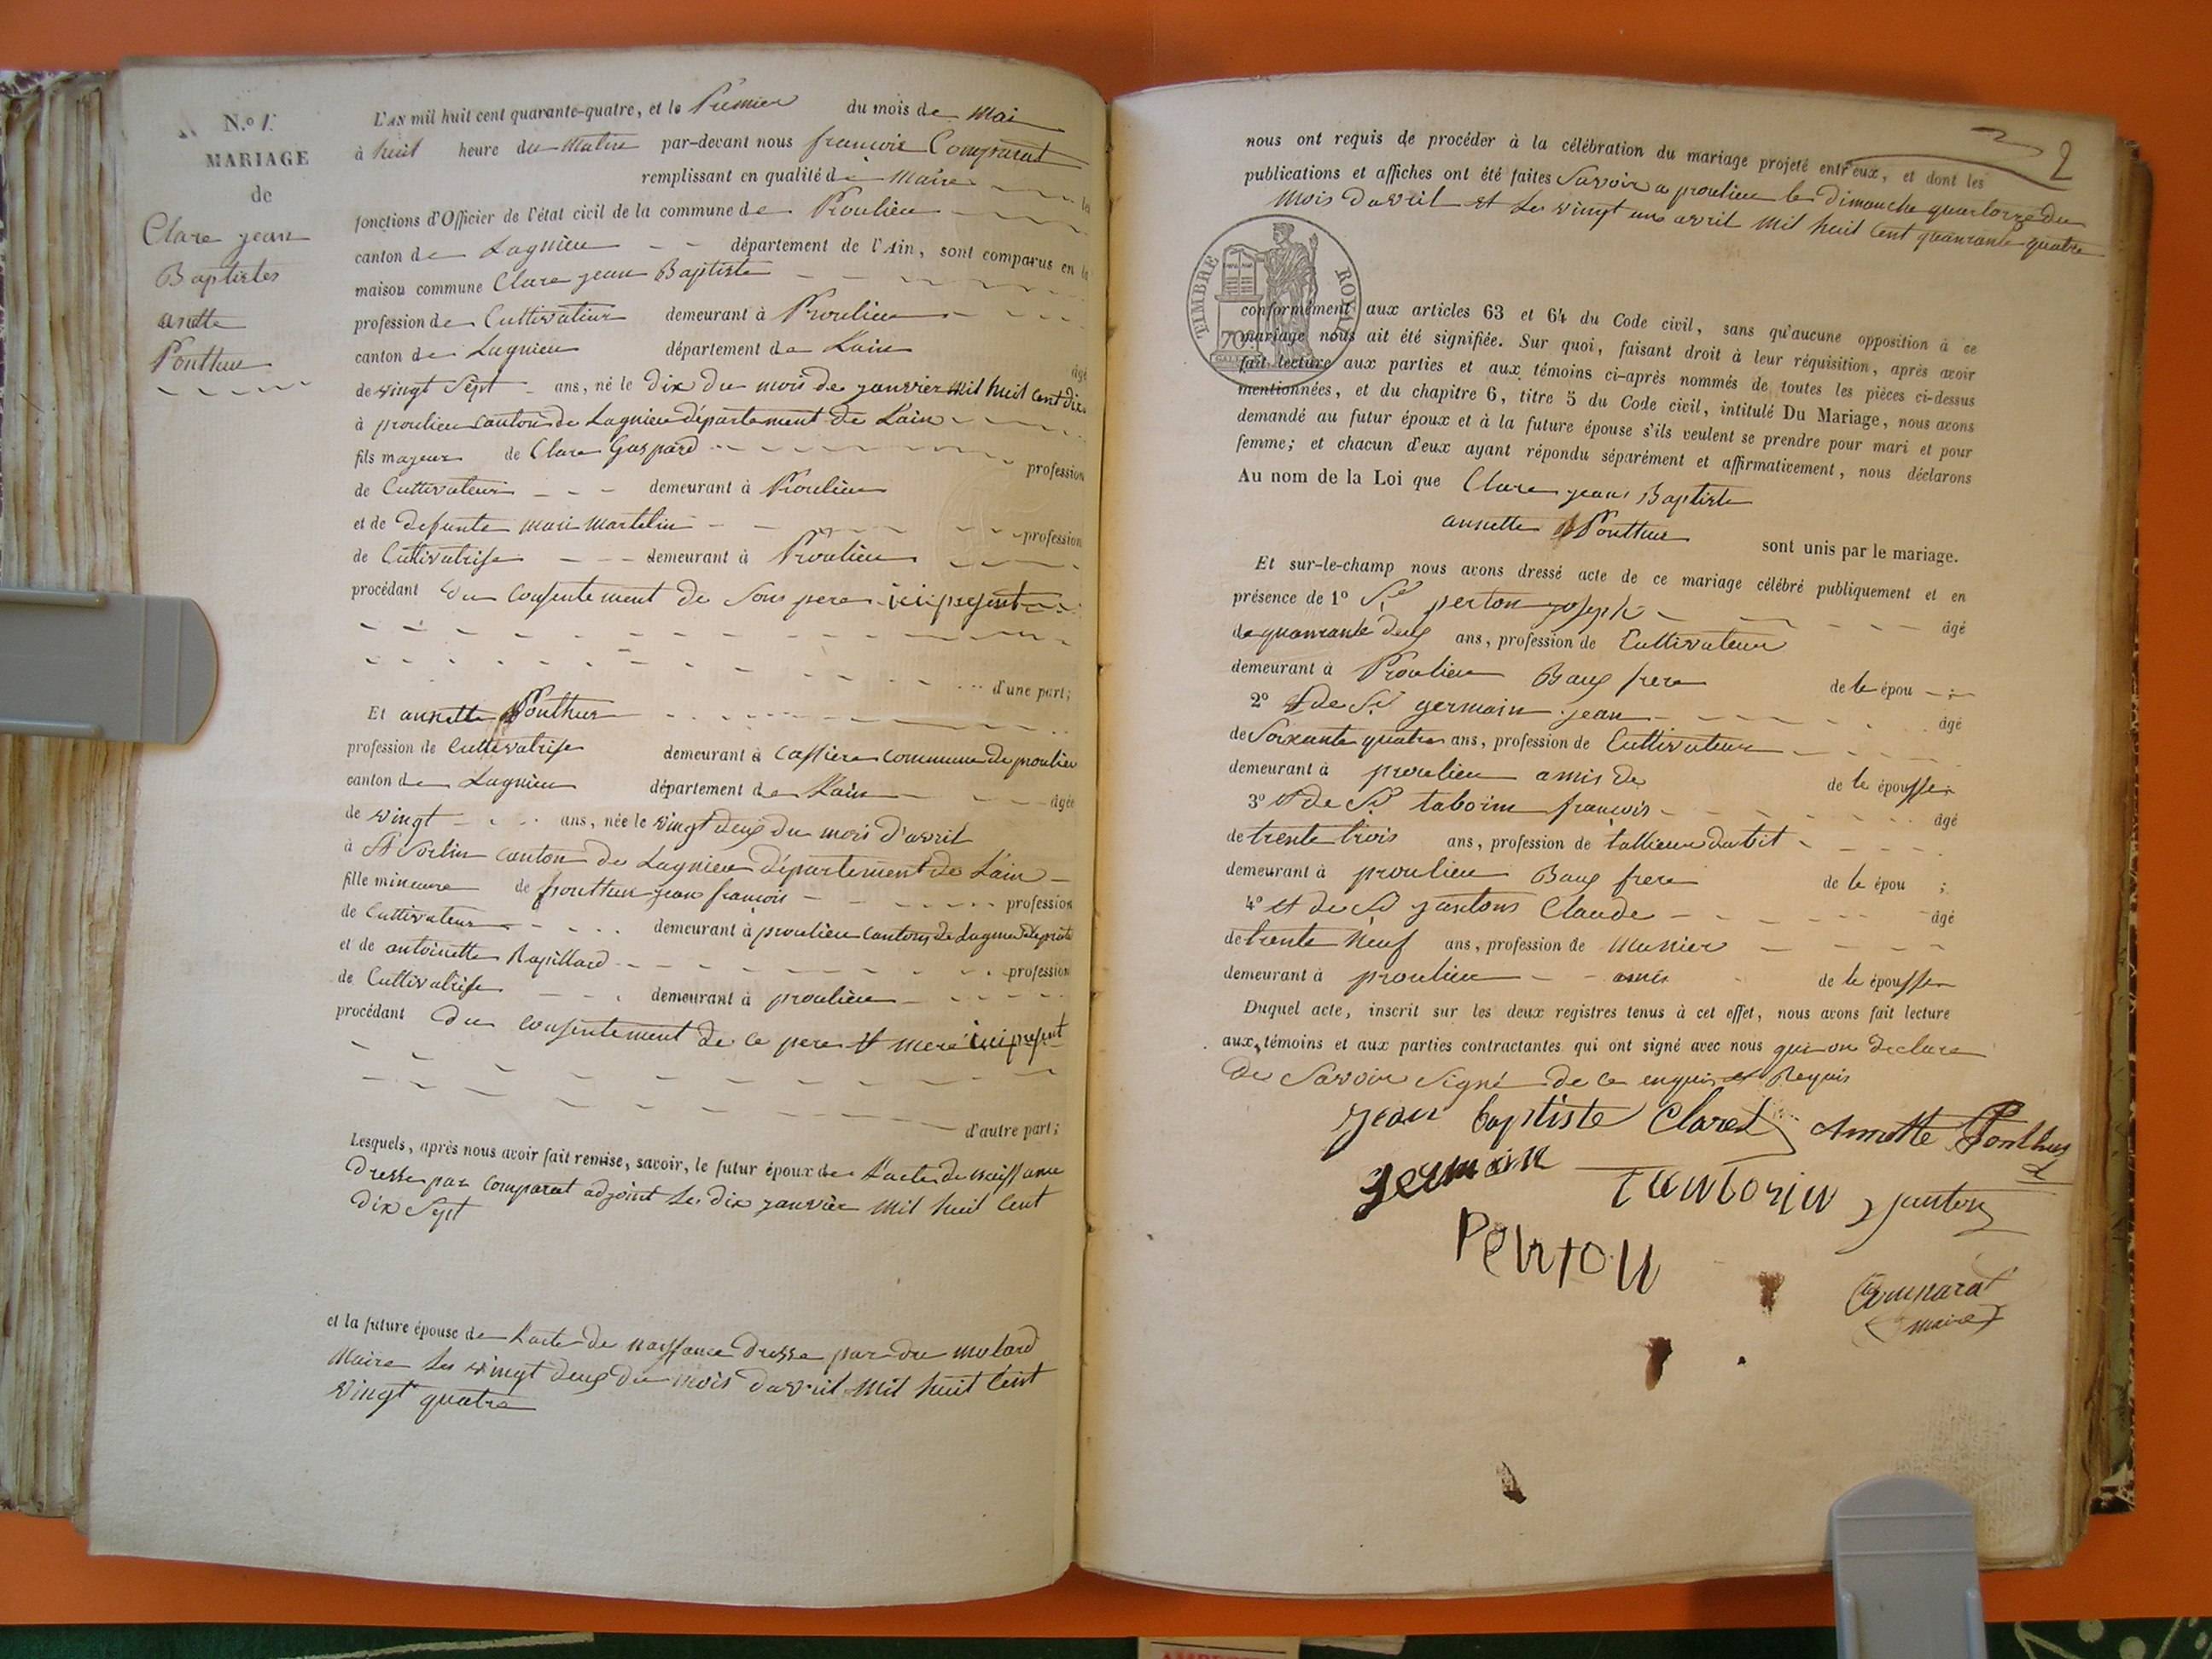 N.º 1.
MARIAGE
de
Clare jean
Baptistes
anette
Ponthus
L'AN mil huit cent quarante-quatre, et le Premier du mois de Mai
à huit heure du Matin par-devant nous francois Comparat
remplissant en qualité de Maire les
fonctions d'Officier de l'état civil de la commune de Proulieu
canton de Lagnieu département de l'Ain, sont comparus en la
maison commune Clare jean Baptiste
profession de Cultivateur demeurant à Proulieu
canton de Lagnieu département de Lain
âgé
de vingt Sept ans, né le Dix du mois de janvier mil huit Cent dix
à proulieu canton de Lagnieu département de Lain
fils majeur de Clare Gaspard profession
de Cultivateur demeurant à Proulieu
et de defunte mari Martelin profession
de Cultivatrise demeurant à Proulieu
procédant du Consentement de Son pere ici present
d'une part;
Et annette Ponthus
profession de Cultivatrise demeurant à Cassiere Commune de proulieu
canton de Lagnieu département de Lain âgée
de vingt ans, née le vingt deux du mois d'avril
à St Sorlin canton de Lagnieu département de Lain
fille mineure de ponthus jean francois profession
de Cultivateur demeurant à proulieu Canton de Lagnieu
et de antoinette Rapillard profession
de Cultivatrise demeurant à proulieu
procédant du Consentement de ce pere et mere ici present
d'autre part;
Lesquels, après nous avoir fait remise, savoir, le futur époux de L'acte de naissance
dresse par Comparat adjoint Le dix janvier mil huit Cent
dix Sept
et la future épouse de Lacte de naissance dresse par du molard
Maire Le vingt deux du mois davril mil huit Cent
vingt quatre
2
nous ont requis de procéder à la célébration du mariage projeté entr'eux, et dont les
publications et affiches ont été faites Savoir a proulieu le Dimanche quatorze du
Mois davril et Le vingt une avril mil huit Cent quarante quatre
TIMBRE ROYAL
70
conformément aux articles 63 et 64 du Code civil, sans qu'aucune opposition à ce
mariage nous ait été signifiée. Sur quoi, faisant droit à leur réquisition, après avoir
fait lecture aux parties et aux témoins ci-après nommés de toutes les pièces ci-dessus
mentionnées, et du chapitre 6, titre 5 du Code civil, intitulé Du Mariage, nous avons
demandé au futur époux et à la future épouse s'ils veulent se prendre pour mari et pour
femme; et chacun d'eux ayant répondu séparément et affirmativement, nous déclarons
Au nom de la Loi que Clare jean Baptiste
annette Ponthus
sont unis par le mariage.
Et sur-le-champ nous avons dressé acte de ce mariage célébré publiquement et en
présence de 1º Sr perton joseph âgé
de quarante deux ans, profession de Cultivateur
demeurant à Proulieu Baux frere de le épou ;
2º et de Sr germain jean âgé
de Soixante quatre ans, profession de Cultivateur
demeurant à proulieu amis de de le épousse
3º et de Sr taborin françois âgé
de trente trois ans, profession de tallieur dabit
demeurant à proulieu Baux frere de le épou ;
4º et de Sr jantons Claude âgé
de trente neuf ans, profession de Munier
demeurant à proulieu amis de le épousse
Duquel acte, inscrit sur les deux registres tenus à cet effet, nous avons fait lecture
aux témoins et aux parties contractantes qui ont signé avec nous qui on declare
De Savoir Signé de ce enquis et Requis
jean baptiste Claret Annette Ponthus
germain Tanborin janton
Perton
Comparat
maire